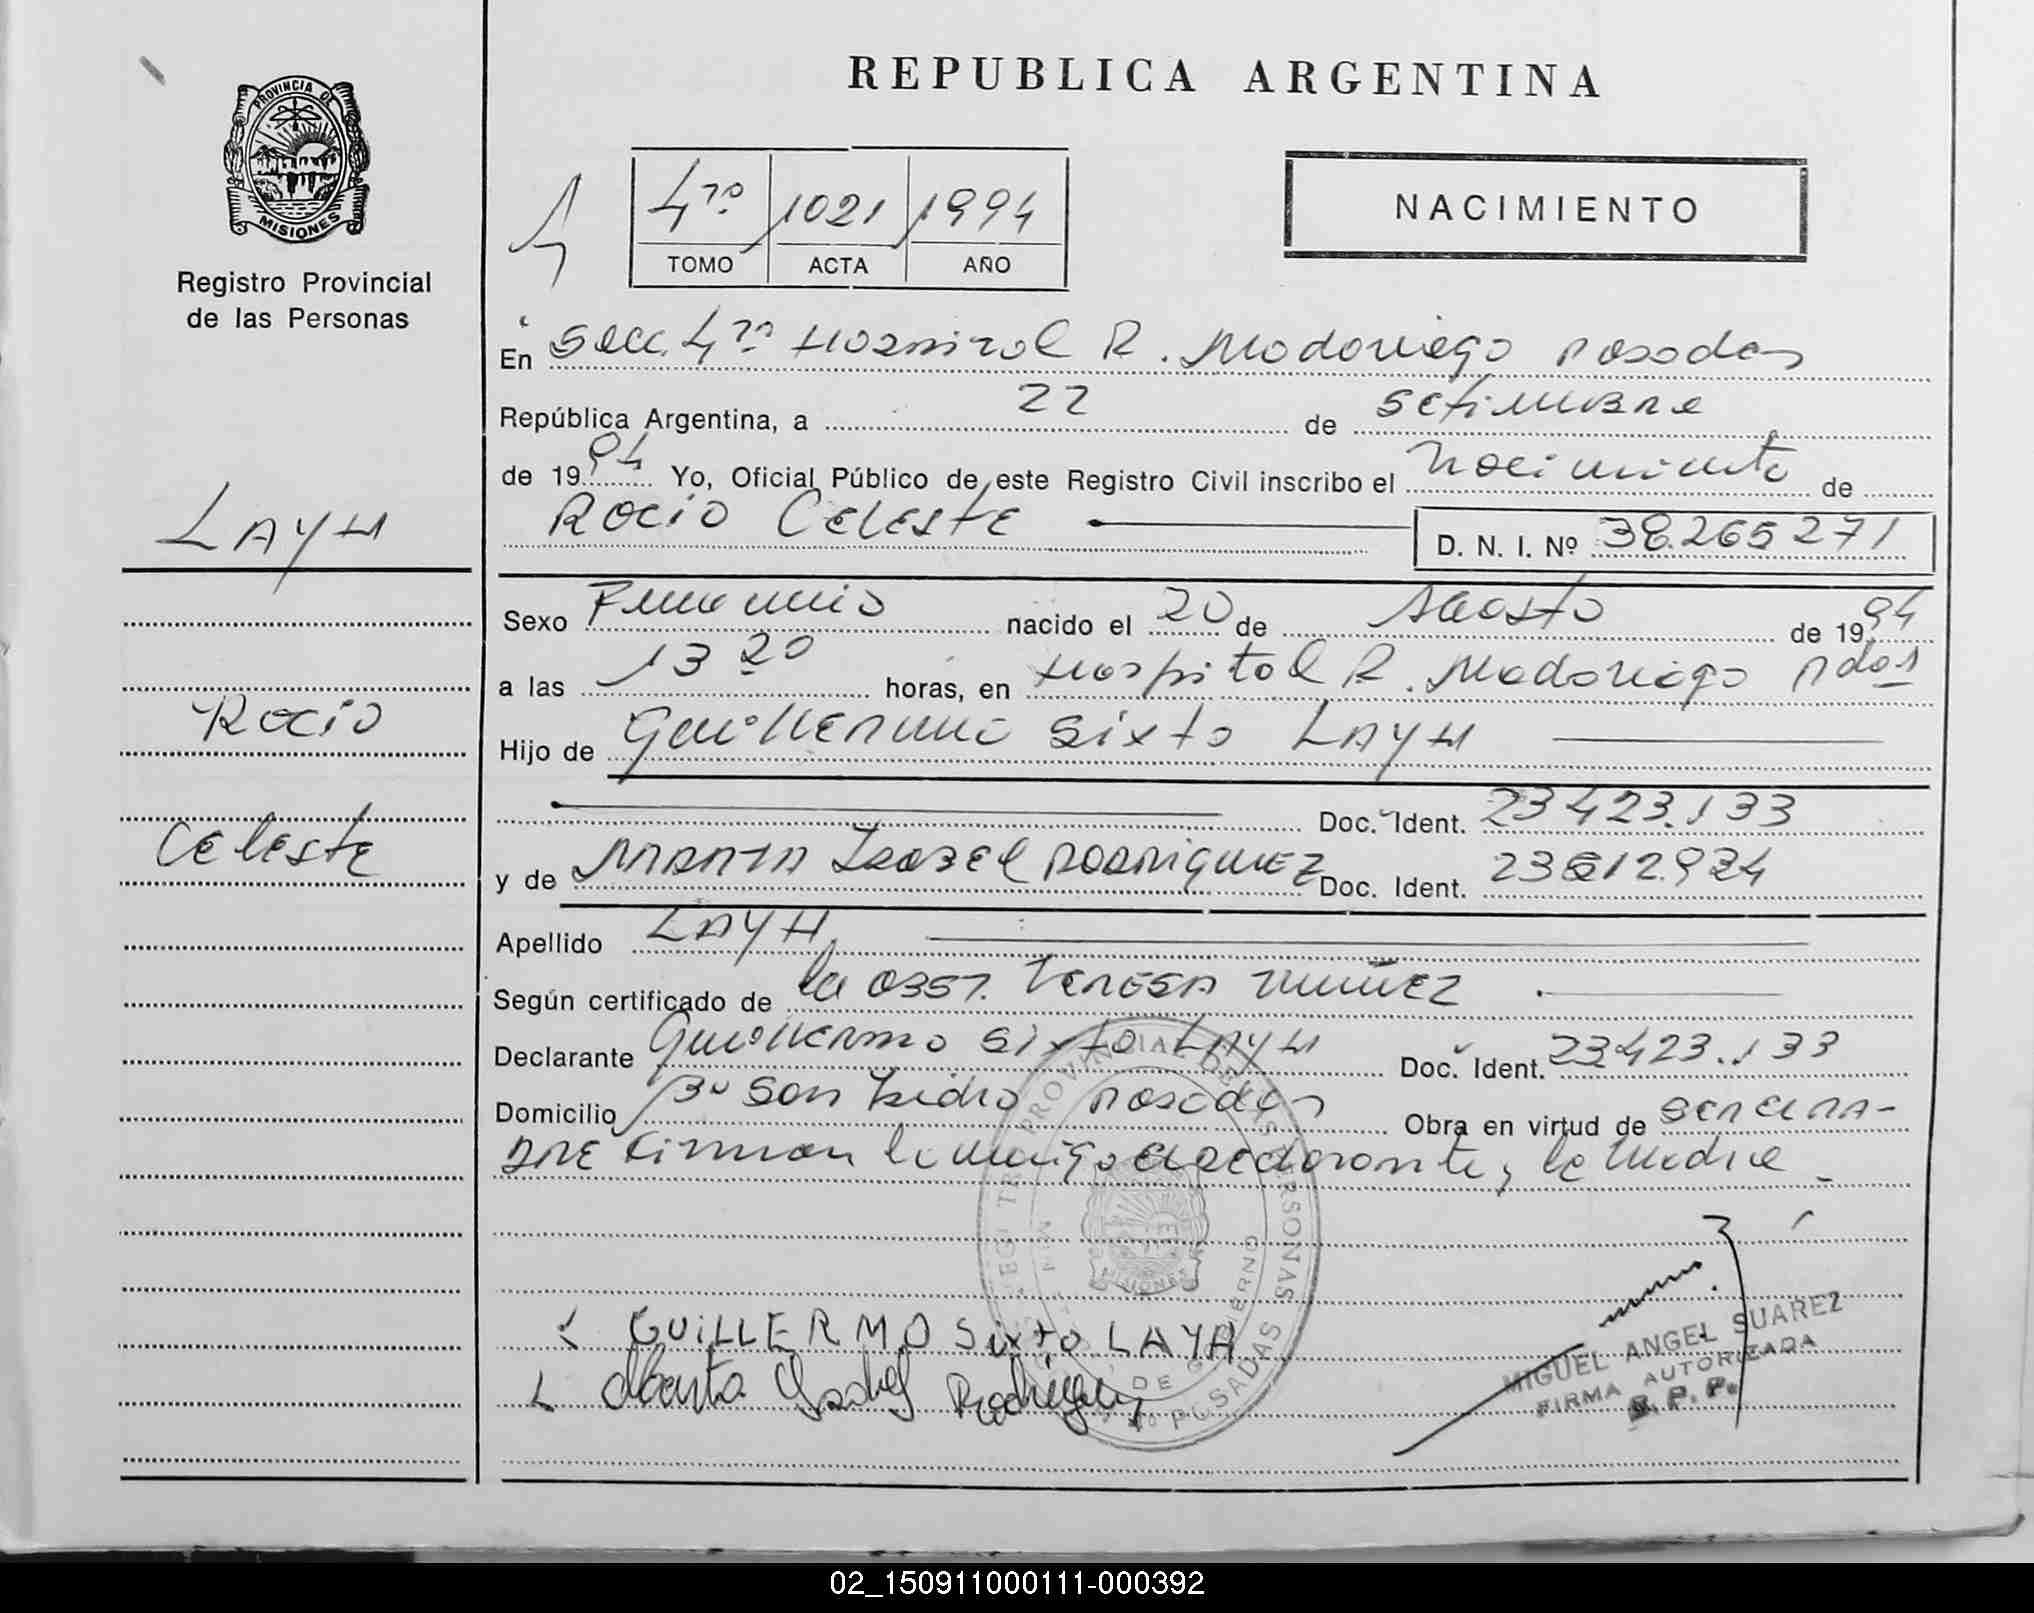 REPUBLICA ARGENTINA
PROVINCIA DE
MISIONES
Registro Provincial
de las Personas
4ro 1021 1994
TOMO ACTA AÑO
NACIMIENTO
En Secc. 4ta Hospital R. Madariaga Posadas
República Argentina, a 22 de Setiembre
de 1994 Yo, Oficial Público de este Registro Civil inscribo el Nacimiento de
Rocio Celeste D. N. I. Nº 38.265271
LAYH
Rocio
Celeste
Sexo Femenino nacido el 20 de Agosto de 1994
a las 13 20 horas, en Hospital R. Madariaga Pdas
Hijo de Guillermo Sixto LAYH
Doc. Ident. 23423.133
y de MARTA Isabel RODRIGUEZ Doc. Ident.
Apellido LAYH
Según certificado de la OBST. TERESA NUÑEZ
Declarante Guillermo Sixto LAYH Doc. Ident. 23423.133
Domicilio Bº San Isidro Posadas Obra en virtud de
firman conmigo el declarante y la Madre
GUiLLERMO Sixto LAYH
Marta Ysabel Rodriguez
REGISTRO PROVINCIAL DE LAS PERSONAS
MISIONES
DE GOBIERNO
POSADAS
MIGUEL ANGEL SUAREZ
FIRMA AUTORIZADA
R. P. P.
02_150911000111-000392